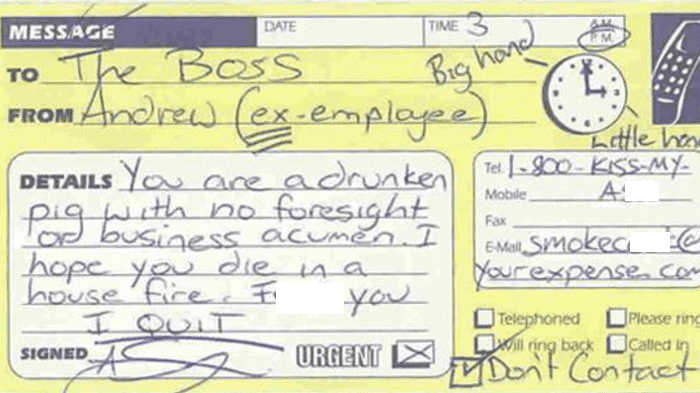 MESSAGE DATE TIME 3 A.M.
P.M.
TO The Boss
Big hand
FROM Andrew (ex-employee)
Little han
DETAILS You are a drunken
pig with no foresight
or business acumen. I
hope you die in a
house fire. F you
I QUIT
SIGNED A URGENT
Tel. 1-800-KISS-MY-
Mobile A
Fax
E-Mail smokec @
yourexpense.com
Telephoned Please ring
Will ring back Called In
Don't Contact